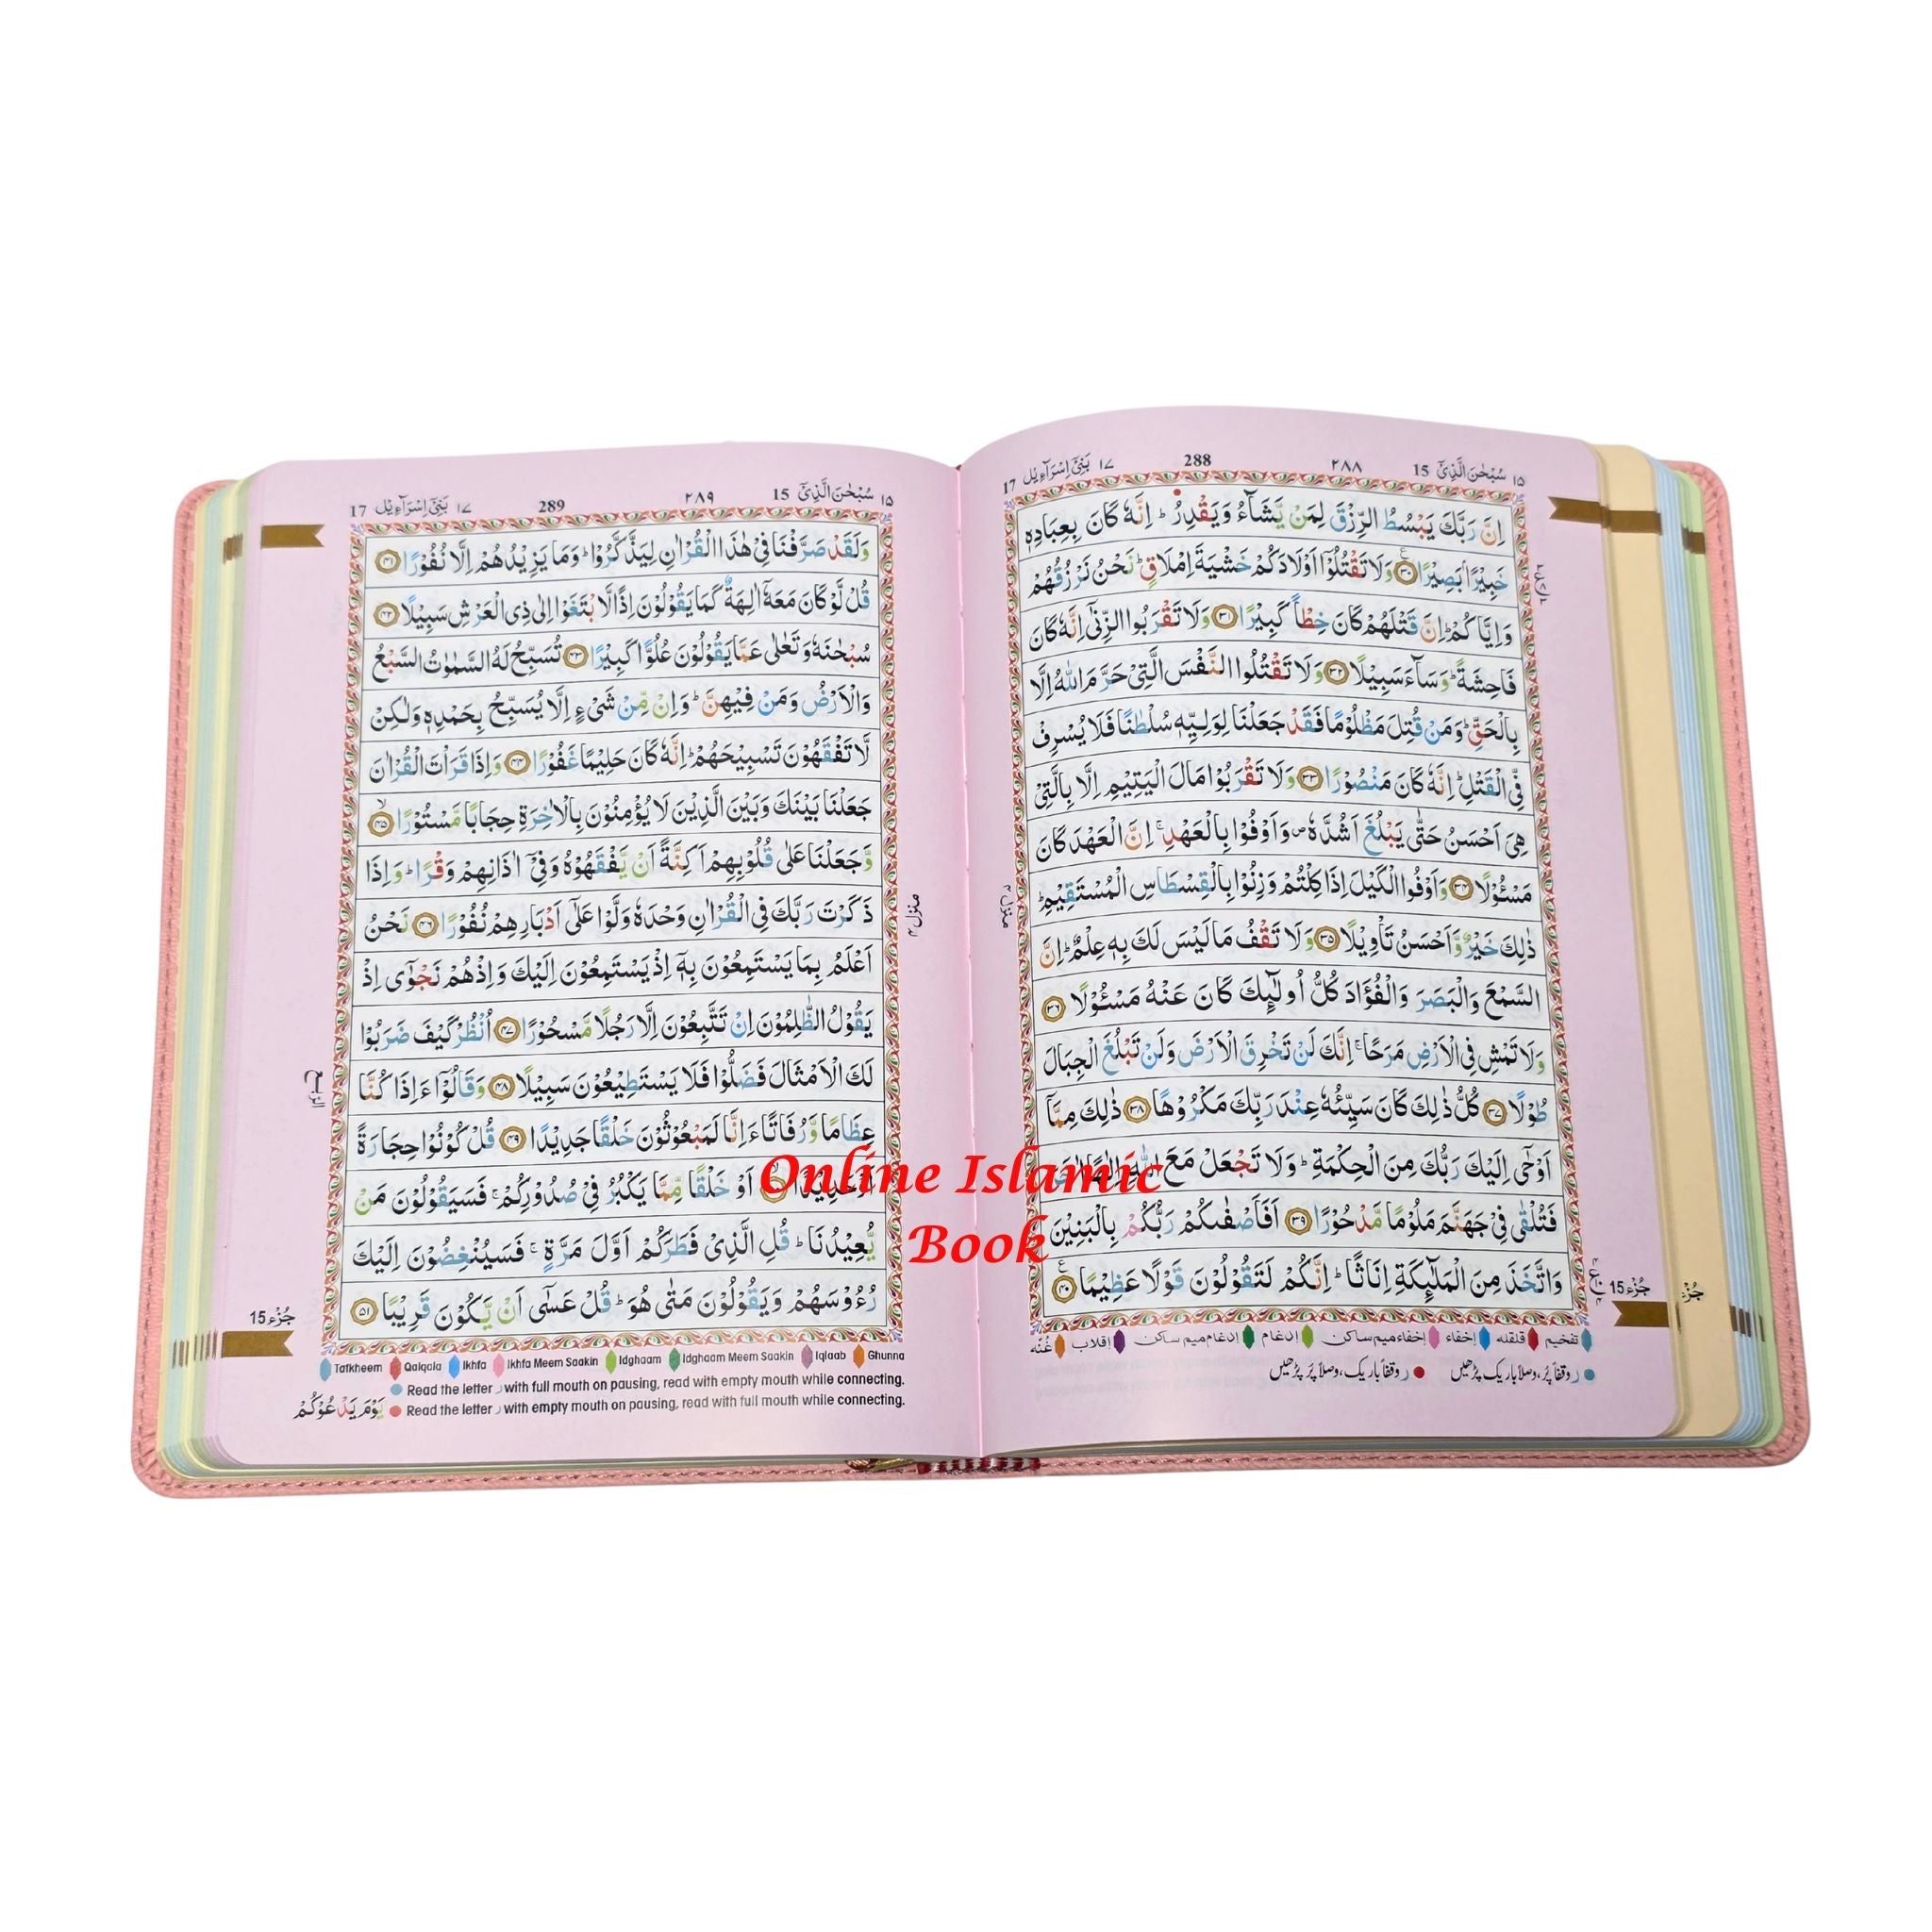 ۱۵ سُبْحٰنَ الَّذِیْۤ 15 ۲۸۸ 288 ۱۷ بَنِیْۤ اِسْرَآءِیْل 17
اِنَّ رَبَّكَ یَبْسُطُ الرِّزْقَ لِمَنْ یَّشَآءُ وَ یَقْدِرُ ؕ اِنَّهٗ كَانَ بِعِبَادِهٖ
خَبِیْرًۢا بَصِیْرًا ۳۰ وَ لَا تَقْتُلُوْۤا اَوْلَادَكُمْ خَشْیَةَ اِمْلَاقٍ ؕ نَحْنُ نَرْزُقُهُمْ
وَ اِیَّاكُمْ ؕ اِنَّ قَتْلَهُمْ كَانَ خِطْاً كَبِیْرًا ۳۱ وَ لَا تَقْرَبُوا الزِّنٰۤی اِنَّهٗ كَانَ
فَاحِشَةً ؕ وَ سَآءَ سَبِیْلًا ۳۲ وَ لَا تَقْتُلُوا النَّفْسَ الَّتِیْ حَرَّمَ اللّٰهُ اِلَّا
بِالْحَقِّ ؕ وَ مَنْ قُتِلَ مَظْلُوْمًا فَقَدْ جَعَلْنَا لِوَلِیِّهٖ سُلْطٰنًا فَلَا یُسْرِفْ
فِّی الْقَتْلِ ؕ اِنَّهٗ كَانَ مَنْصُوْرًا ۳۳ وَ لَا تَقْرَبُوْا مَالَ الْیَتِیْمِ اِلَّا بِالَّتِیْ
هِیَ اَحْسَنُ حَتّٰی یَبْلُغَ اَشُدَّهٗ ۪ وَ اَوْفُوْا بِالْعَهْدِ ۚ اِنَّ الْعَهْدَ كَانَ
مَسْـُٔوْلًا ۳۴ وَ اَوْفُوا الْكَیْلَ اِذَا كِلْتُمْ وَ زِنُوْا بِالْقِسْطَاسِ الْمُسْتَقِیْمِ ؕ
ذٰلِكَ خَیْرٌ وَّ اَحْسَنُ تَاْوِیْلًا ۳۵ وَ لَا تَقْفُ مَا لَیْسَ لَكَ بِهٖ عِلْمٌ ؕ اِنَّ
السَّمْعَ وَ الْبَصَرَ وَ الْفُؤَادَ كُلُّ اُولٰٓىِٕكَ كَانَ عَنْهُ مَسْـُٔوْلًا ۳۶
وَ لَا تَمْشِ فِی الْاَرْضِ مَرَحًا ۚ اِنَّكَ لَنْ تَخْرِقَ الْاَرْضَ وَ لَنْ تَبْلُغَ الْجِبَالَ
طُوْلًا ۳۷ كُلُّ ذٰلِكَ كَانَ سَیِّئُهٗ عِنْدَ رَبِّكَ مَكْرُوْهًا ۳۸ ذٰلِكَ مِمَّاۤ
اَوْحٰۤی اِلَیْكَ رَبُّكَ مِنَ الْحِكْمَةِ ؕ وَ لَا تَجْعَلْ مَعَ اللّٰهِ اِلٰهًا اٰخَرَ
فَتُلْقٰی فِیْ جَهَنَّمَ مَلُوْمًا مَّدْحُوْرًا ۳۹ اَفَاَصْفٰىكُمْ رَبُّكُمْ بِالْبَنِیْنَ
وَ اتَّخَذَ مِنَ الْمَلٰٓىِٕكَةِ اِنَاثًا ؕ اِنَّكُمْ لَتَقُوْلُوْنَ قَوْلًا عَظِیْمًا ۴۰
تفخیم قلقله إخفاء إخفاء میم ساکن إدغام إدغام میم ساکن إقلاب غُنّه
ر وقفاً پُر، وصلاً باریک پڑھیں ر وقفاً باریک، وصلاً پُر پڑھیں
منزل ۴
جُزْء 15
جُزْء
۱۵ سُبْحٰنَ الَّذِیْۤ 15 ۲۸۹ 289 ۱۷ بَنِیْۤ اِسْرَآءِیْل 17
وَ لَقَدْ صَرَّفْنَا فِیْ هٰذَا الْقُرْاٰنِ لِیَذَّكَّرُوْا ؕ وَ مَا یَزِیْدُهُمْ اِلَّا نُفُوْرًا ۴۱
قُلْ لَّوْ كَانَ مَعَهٗۤ اٰلِهَةٌ كَمَا یَقُوْلُوْنَ اِذًا لَّابْتَغَوْا اِلٰی ذِی الْعَرْشِ سَبِیْلًا ۴۲
سُبْحٰنَهٗ وَ تَعٰلٰی عَمَّا یَقُوْلُوْنَ عُلُوًّا كَبِیْرًا ۴۳ تُسَبِّحُ لَهُ السَّمٰوٰتُ السَّبْعُ
وَ الْاَرْضُ وَ مَنْ فِیْهِنَّ ؕ وَ اِنْ مِّنْ شَیْءٍ اِلَّا یُسَبِّحُ بِحَمْدِهٖ وَ لٰكِنْ
لَّا تَفْقَهُوْنَ تَسْبِیْحَهُمْ ؕ اِنَّهٗ كَانَ حَلِیْمًا غَفُوْرًا ۴۴ وَ اِذَا قَرَاْتَ الْقُرْاٰنَ
جَعَلْنَا بَیْنَكَ وَ بَیْنَ الَّذِیْنَ لَا یُؤْمِنُوْنَ بِالْاٰخِرَةِ حِجَابًا مَّسْتُوْرًا ۴۵
وَّ جَعَلْنَا عَلٰی قُلُوْبِهِمْ اَكِنَّةً اَنْ یَّفْقَهُوْهُ وَ فِیْۤ اٰذَانِهِمْ وَقْرًا ؕ وَ اِذَا
ذَكَرْتَ رَبَّكَ فِی الْقُرْاٰنِ وَحْدَهٗ وَلَّوْا عَلٰۤی اَدْبَارِهِمْ نُفُوْرًا ۴۶ نَحْنُ
اَعْلَمُ بِمَا یَسْتَمِعُوْنَ بِهٖۤ اِذْ یَسْتَمِعُوْنَ اِلَیْكَ وَ اِذْ هُمْ نَجْوٰۤی اِذْ
یَقُوْلُ الظّٰلِمُوْنَ اِنْ تَتَّبِعُوْنَ اِلَّا رَجُلًا مَّسْحُوْرًا ۴۷ اُنْظُرْ كَیْفَ ضَرَبُوْا
لَكَ الْاَمْثَالَ فَضَلُّوْا فَلَا یَسْتَطِیْعُوْنَ سَبِیْلًا ۴۸ وَ قَالُوْۤا ءَاِذَا كُنَّا
عِظَامًا وَّ رُفَاتًا ءَاِنَّا لَمَبْعُوْثُوْنَ خَلْقًا جَدِیْدًا ۴۹ قُلْ كُوْنُوْا حِجَارَةً
اَوْ حَدِیْدًا ۵۰ اَوْ خَلْقًا مِّمَّا یَكْبُرُ فِیْ صُدُوْرِكُمْ ۚ فَسَیَقُوْلُوْنَ مَنْ
یُّعِیْدُنَا ؕ قُلِ الَّذِیْ فَطَرَكُمْ اَوَّلَ مَرَّةٍ ۚ فَسَیُنْغِضُوْنَ اِلَیْكَ
رُءُوْسَهُمْ وَ یَقُوْلُوْنَ مَتٰی هُوَ ؕ قُلْ عَسٰۤی اَنْ یَّكُوْنَ قَرِیْبًا ۵۱
Tafkheem Qalqala Ikhfa Ikhfa Meem Saakin Idghaam Idghaam Meem Saakin Iqlaab Ghunna
Read the letter ر with full mouth on pausing, read with empty mouth while connecting.
Read the letter ر with empty mouth on pausing, read with full mouth while connecting.
یَوْمَ یَدْعُوْكُمْ
منزل ۴
الربع
جُزْء 15
Online Islamic
Book